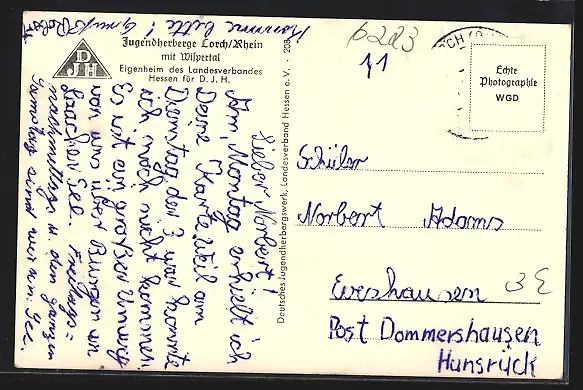 Jugendherberge Lorch/Rhein
mit Wispertal
Eigenheim des Landesverbandes
Hessen für D. J. H.
DJH
Deutsches Jugendherbergswerk, Landesverband Hessen e. V. · 208
Echte
Photographie
WGD
6203
11
Lieber Norbert!
Am Montag erhielt ich
Deine Karte. Weil am
Dienstag der 3. war konnte
ich noch nicht kommen.
Es ist ein großer Umweg
von uns über Bingen an
Laacher See. Freitags=
nachmittags u. den ganzen
Samstag sind wir am See.
Komme bitte! Gruß Robert
Schüler
Norbert Adams
Evershausen
Post Dommershausen
Hunsrück